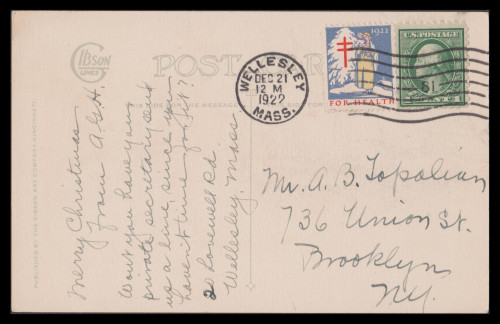 GIBSON
LINES
POST CAR
MESSAGE
PUBLISHED BY THE GIBSON ART COMPANY, CINCINNATI
Merry Christmas
from A.G.H.
Wont you have your
private secretary send
us a line, since you
haven't time for it?
2 Lovewell Rd
Wellesley, Mass
WELLESLEY
DEC 21
12 M
1922
MASS.
1922
FOR HEALTH
U.S. POSTAGE
Mr. A. B. Topalian
736 Union St.
Brooklyn
N.Y.